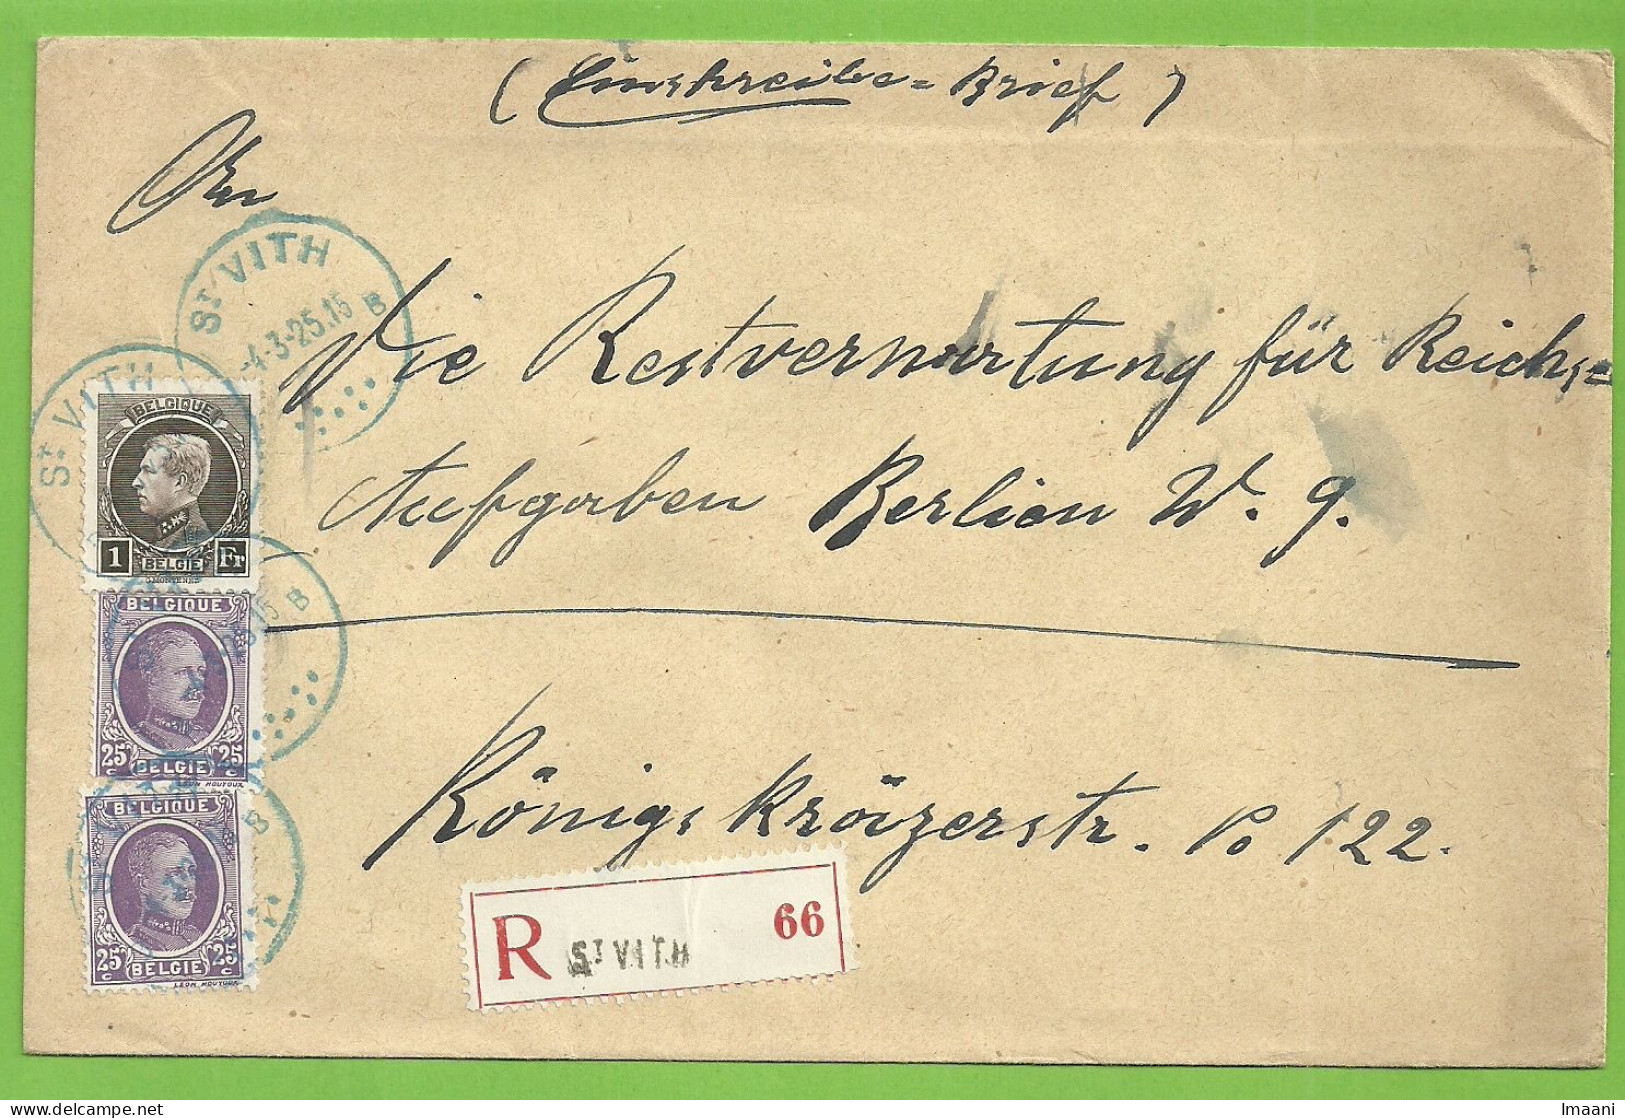 (Einschreibe=Brief)
An
Die Restverwartung für Reichs=
Aufgaben Berlien W. 9.
Königskräizerstr. No 122.
ST VITH
-4-3-25.15
B
ST VITH
BELGIQUE
1 BELGIE Fr
15 B
BELGIQUE
25 c BELGIE 25 c
LEON HOUYOUX
BELGIQUE
B
25 c BELGIE 25 c
LEON HOUYOUX
R ST VITH 66
delcampe.net
Imaani